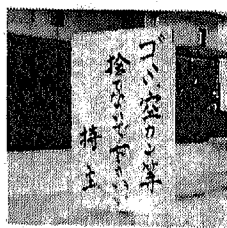 ゴミ空カン等
捨てないで下さい
持主